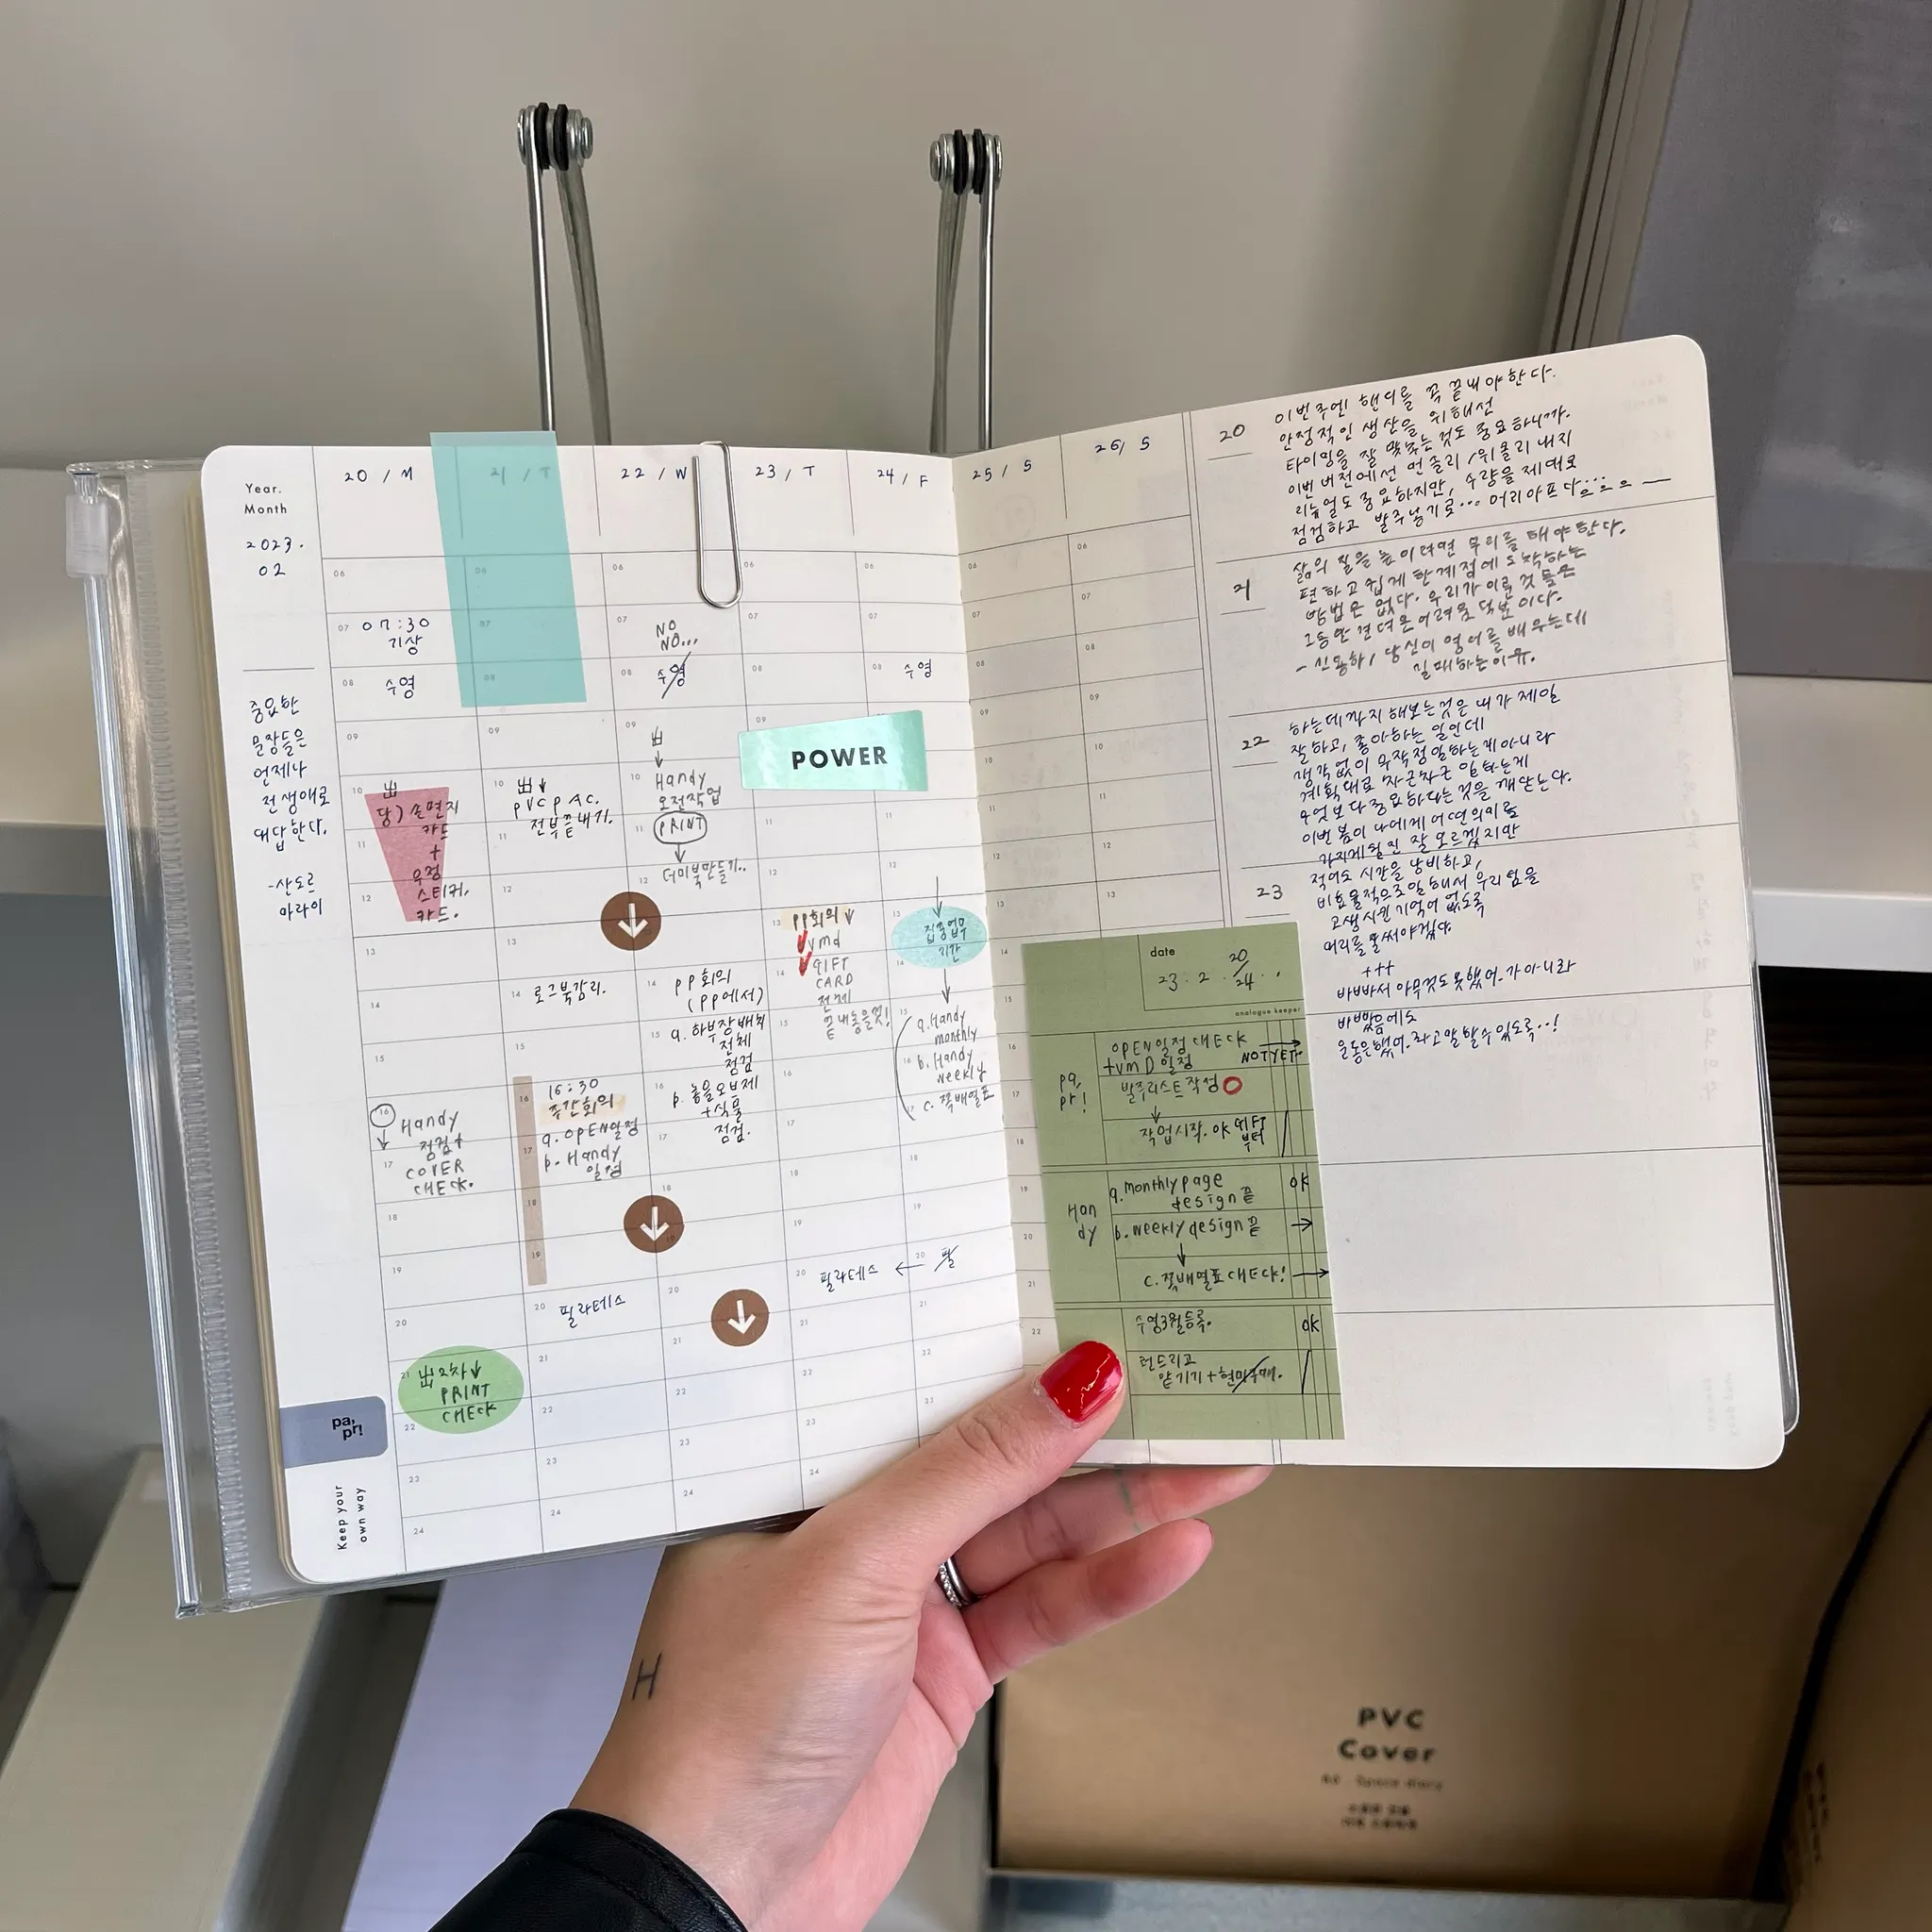 Year.
Month
2023.
02
중요한
문장들은
언제나
전 생애로
대답한다.
-산도르
마라이
pa,
pr!
Keep your
own way
20 / M
21 / T
22 / W
23 / T
24 / F
25 / S
26 / S
07:30
기상
수영
出
당) 손편지
카드
+
우정
스티커.
카드.
16
Handy
점검 +
COVER
CHECK.
出 2차↓
PRINT
CHECK
出↓
PVC P AC.
전부끝내기.
로그북감리.
16:30
주간회의
a. OPEN일정
b. Handy
일정
필라테스
NO
NO...
수영
出
↓
Handy
오전작업
PRINT
↓
더미북만들기..
PP회의
(PP에서)
a. 하부장배치
전체
점검
b. 놓을오브제
+식물
점검.
POWER
PP회의↓
vmd
GIFT
CARD
전체
끝내놓을것!
필라테스 ←
필
수영
↓
집중업무
기간
↓
a. Handy
monthly
b. Handy
weekly
c. 쪽배열표
20
이번주엔 핸디를 꼭 끝내야한다.
안정적인 생산을 위해선
타이밍을 잘 맞추는 것도 중요하니까.
이번 버전에선 먼슬리/위클리 내지
리뉴얼도 중요하지만, 수량을 제대로
점검하고 발주넣기로... 머리아프다...
21
삶의 질을 높이려면 무리를 해야한다.
편하고 쉽게 한계점에 도착하는
방법은 없다. 우리가 이룬 것들은
그동안 견뎌온 어려움 덕분이다.
- 신용하, 당신이 영어를 배우는데
실패하는이유.
22
하는데까지 해보는것은 내가 제일
잘하고, 좋아하는 일인데
생각없이 무작정 일하는게아니라
계획대로 차근차근 일하는게
무엇보다중요하다는 것을 깨닫는다.
이번 봄이 나에게 어떤의미로
가지게될진 잘 모르겠지만
23
적어도 시간을 낭비하고,
비효율적으로일해서 우리팀을
고생시킨 기억이 없도록
머리를 잘써야겠다.
+++
바빠서 아무것도 못했어. 가 아니라
바빴음에도
운동은했어. 라고 말할수있도록..!
date
23. 2. 20/24.
analogue keeper
pa,
pr!
OPEN일정 CHECK
+VMD 일정 NOT YET.
발주리스트작성
↓
작업시작. OK GIFT
부터
Han
dy
a. monthly page
design 끝
OK
b. weekly design 끝 →
↓
c. 쪽배열표 CHECK! →
수영3월등록.
OK
런드리고
맡기기 + 현미구매.
H
PVC
Cover
A6 · Space diary